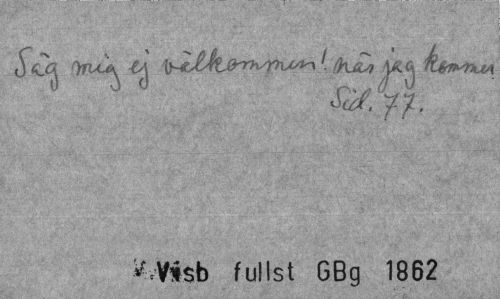 Säg mig ej välkommen! när jag kommer
Sid. 77.
V. Visb fullst GBg 1862